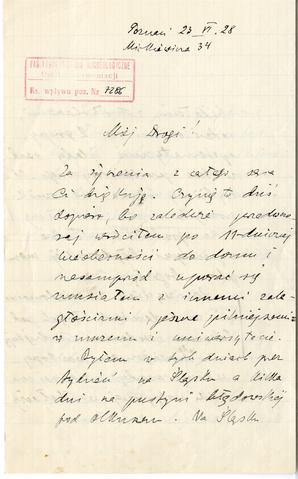 Poznań 23 VI 28
Mickiewicza 34
PAŃSTWOWE MUZEUM ARCHEOLOGICZNE
Ks. wpływu poz. Nr
Mój Drogi!
Za życzenia z całego serca
Ci dziękuję. Czynię to dziś
dopiero, bo zaledwie przedwczo
raj wróciłem po 11-dniowej
nieobecności do domu i
nasamprzód uporać się
musiałem z innemi zale
głościami jeszcze pilniejszemi
w muzeum i uniwersytecie.
Byłem w tych dniach
tydzień na Śląsku a kilka
dni na pustyni błędowskiej
pod Olkuszem. Na Śląsku